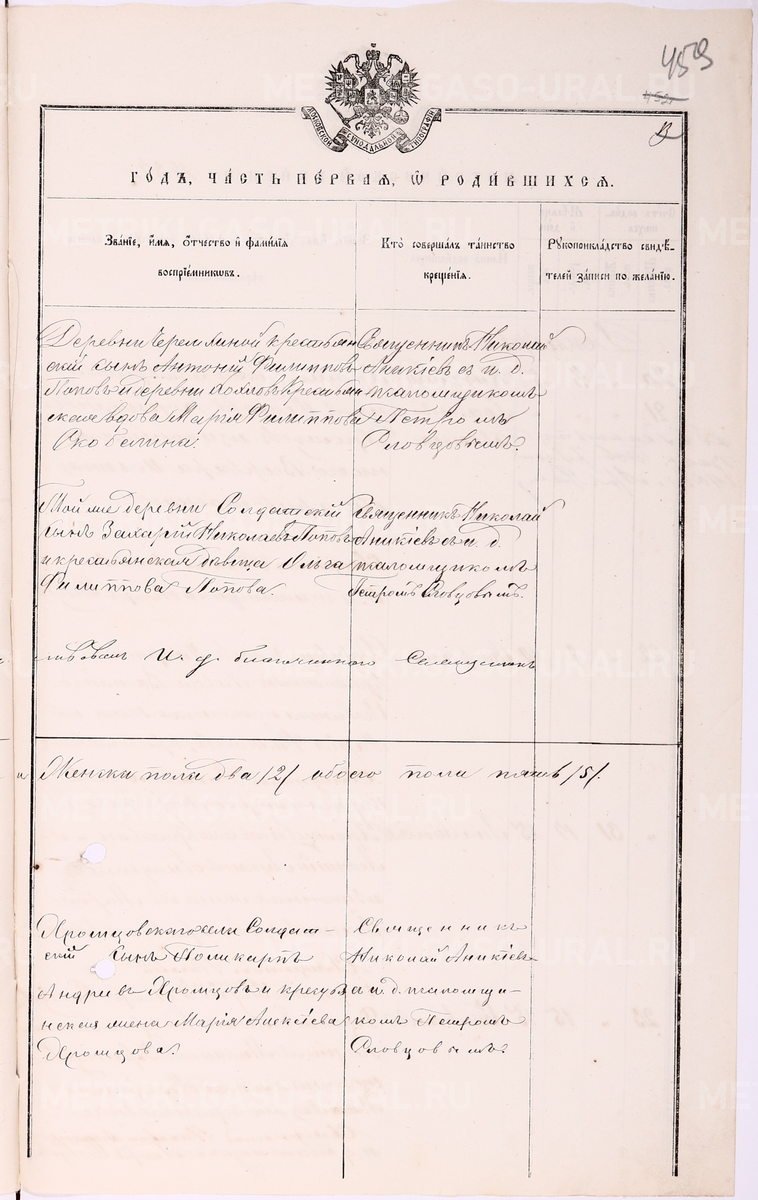 METRIKI.GASO-URAL.RU
459
МОСКОВСКОЙ СѴНОДАЛЬНОЙ ТИПОГРАФІИ
ГОДЪ, ЧАСТЬ ПЕРВАЯ, Ѡ РОДИВШИХСЯ.
Званїе, имя, отчество и фамилїя
воспрїемниковъ.
Кто совершалъ таинство
крещенїя.
Рукоприкладство свидѣ-
телей записи по желанїю.
крестьян
скій сынъ Антоній Филипповъ
Поповъ и деревни Хохловъ крестьян
ская вдова Марія Филиппова
Священникъ Николай
Аникіевъ съ и. д.
псаломщикомъ
Петромъ
Словцовымъ.
Той же деревни Солдатскій
сынъ Захарій Николаевъ Поповъ
и крестьянская дѣвица Ольга
Филиппова Попова.
Священникъ Николай
Аникіевъ съ и. д.
псаломщикомъ
Петромъ Словцовымъ.
И. д. благочиннаго Священникъ
Женска пола два /2/ обоего пола пять /5/.
Хромцовскаго села Солдат-
скій сынъ Поликарпъ
Андреевъ Хромцовъ и кресть
янская жена Марія Алексіева
Хромцова.
Священникъ
Николай Аникіевъ
и. д. псаломщи-
комъ Петромъ
Словцовымъ.